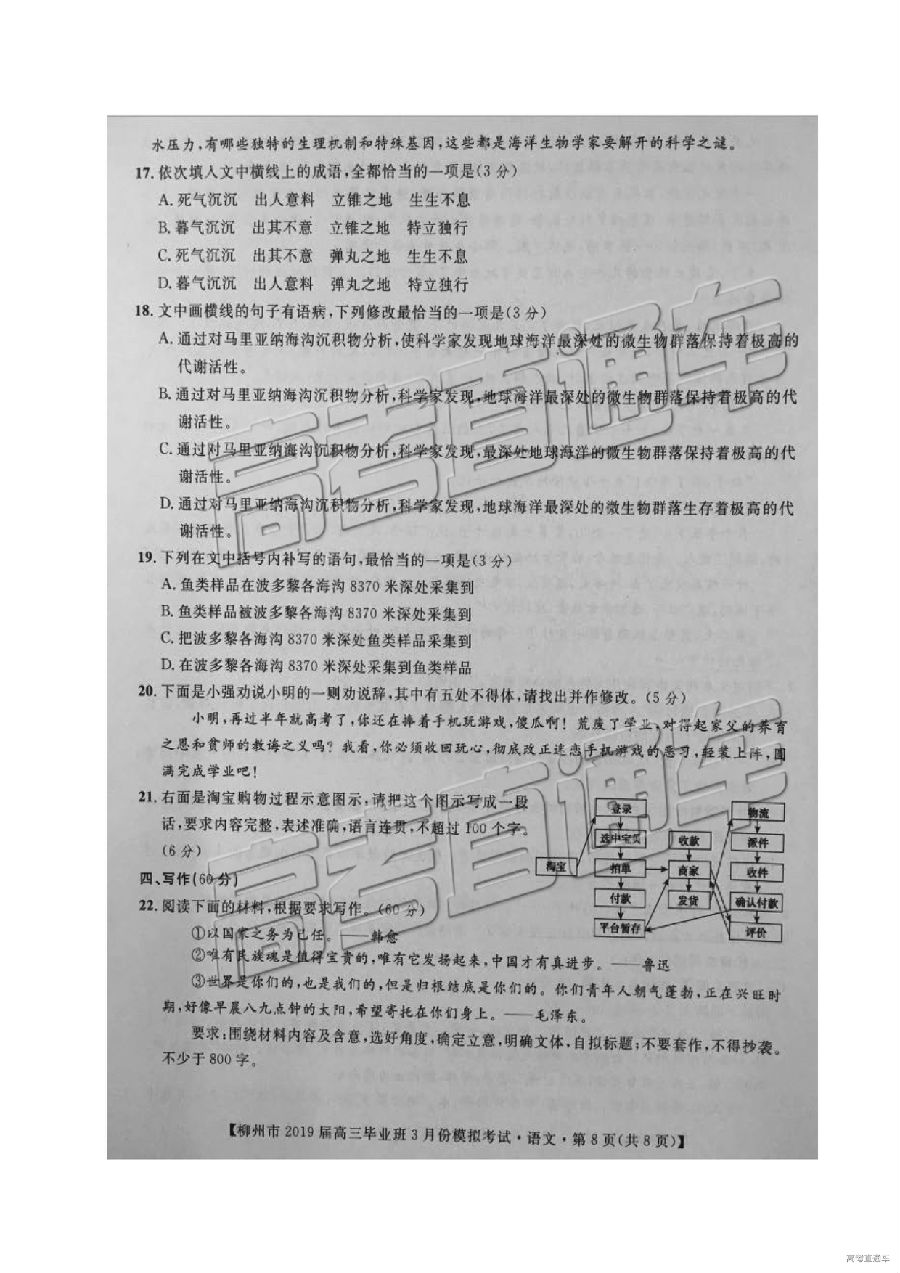 水压力,有哪些独特的生理机制和特殊基因,这些都是海洋生物学家要解开的科学之谜。
17.依次填人文中横线上的成语,全都恰当的一项是(3分)
A.死气沉沉 出人意料 立锥之地 生生不息
B.暮气沉沉 出其不意 立锥之地 特立独行
C.死气沉沉 出其不意 弹丸之地 生生不息
D.暮气沉沉 出人意料 弹丸之地 特立独行
18.文中画横线的句子有语病,下列修改最恰当的一项是(3分)
A.通过对马里亚纳海沟沉积物分析,使科学家发现地球海洋最深处的微生物群落保持着极高的
代谢活性。
B.通过对马里亚纳海沟沉积物分析,科学家发现,地球海洋最深处的微生物群落保持着极高的代
谢活性。
C.通过对马里亚纳海沟沉积物分析,科学家发现,最深处地球海洋的微生物群落保持着极高的代
谢活性。
D.通过对马里亚纳海沟沉积物分析,科学家发现,地球海洋最深处的微生物群落生存着极高的代
谢活性。
19.下列在文中括号内补写的语句,最恰当的一项是(3分)
A.鱼类样品在波多黎各海沟8370米深处采集到
B.鱼类样品被波多黎各海沟8370米深处采集到
C.把波多黎各海沟8370米深处鱼类样品采集到
D.在波多黎各海沟8370米深处采集到鱼类样品
20.下面是小强劝说小明的一则劝说辞,其中有五处不得体,请找出并作修改。(5分)
小明,再过半年就高考了,你还在捧着手机玩游戏,傻瓜啊!荒废了学业,对得起家父的养育
之恩和贫师的教诲之义吗?我看,你必须收回玩心,彻底改正迷恋手机游戏的恶习,轻装上阵,圆
满完成学业吧!
21.右面是淘宝购物过程示意图示,请把这个图示写成一段
话,要求内容完整,表述准确,语言连贯,不超过100个字。
(6分)
淘宝
登录
选中宝贝
拍单
付款
平台暂存
收款
商家
发货
物流
派件
收件
确认付款
评价
四、写作(60分)
22.阅读下面的材料,根据要求写作。(60分)
①以国家之务为己任。——韩愈
②唯有民族魂是值得宝贵的,唯有它发扬起来,中国才有真进步。——鲁迅
③世界是你们的,也是我们的,但是归根结底是你们的。你们青年人朝气蓬勃,正在兴旺时
期,好像早晨八九点钟的太阳,希望寄托在你们身上。——毛泽东。
要求:围绕材料内容及含意,选好角度,确定立意,明确文体,自拟标题;不要套作,不得抄袭。
不少于800字。
【柳州市2019届高三毕业班3月份模拟考试·语文·第8页(共8页)】
高考直通车
高考直通车
高考直通车
高考直通车